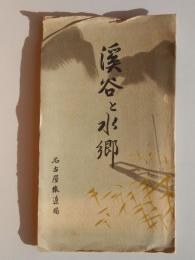 溪谷と水郷
名古屋鐵道局